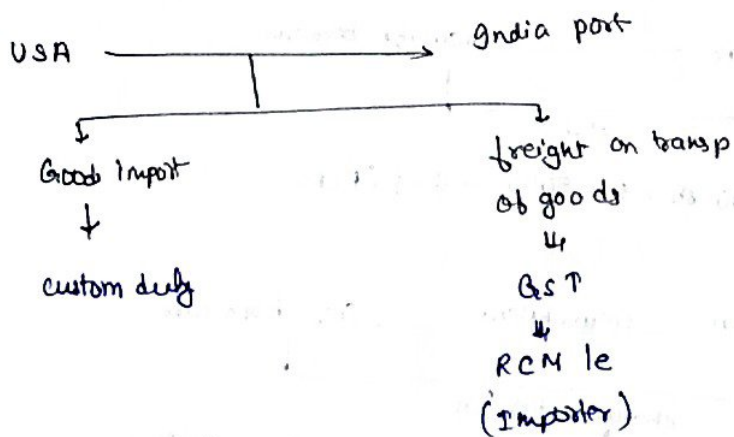 USA
India port
Goods import
custom duty
freight on transp
of goods
GST
RCM le
(Importer)